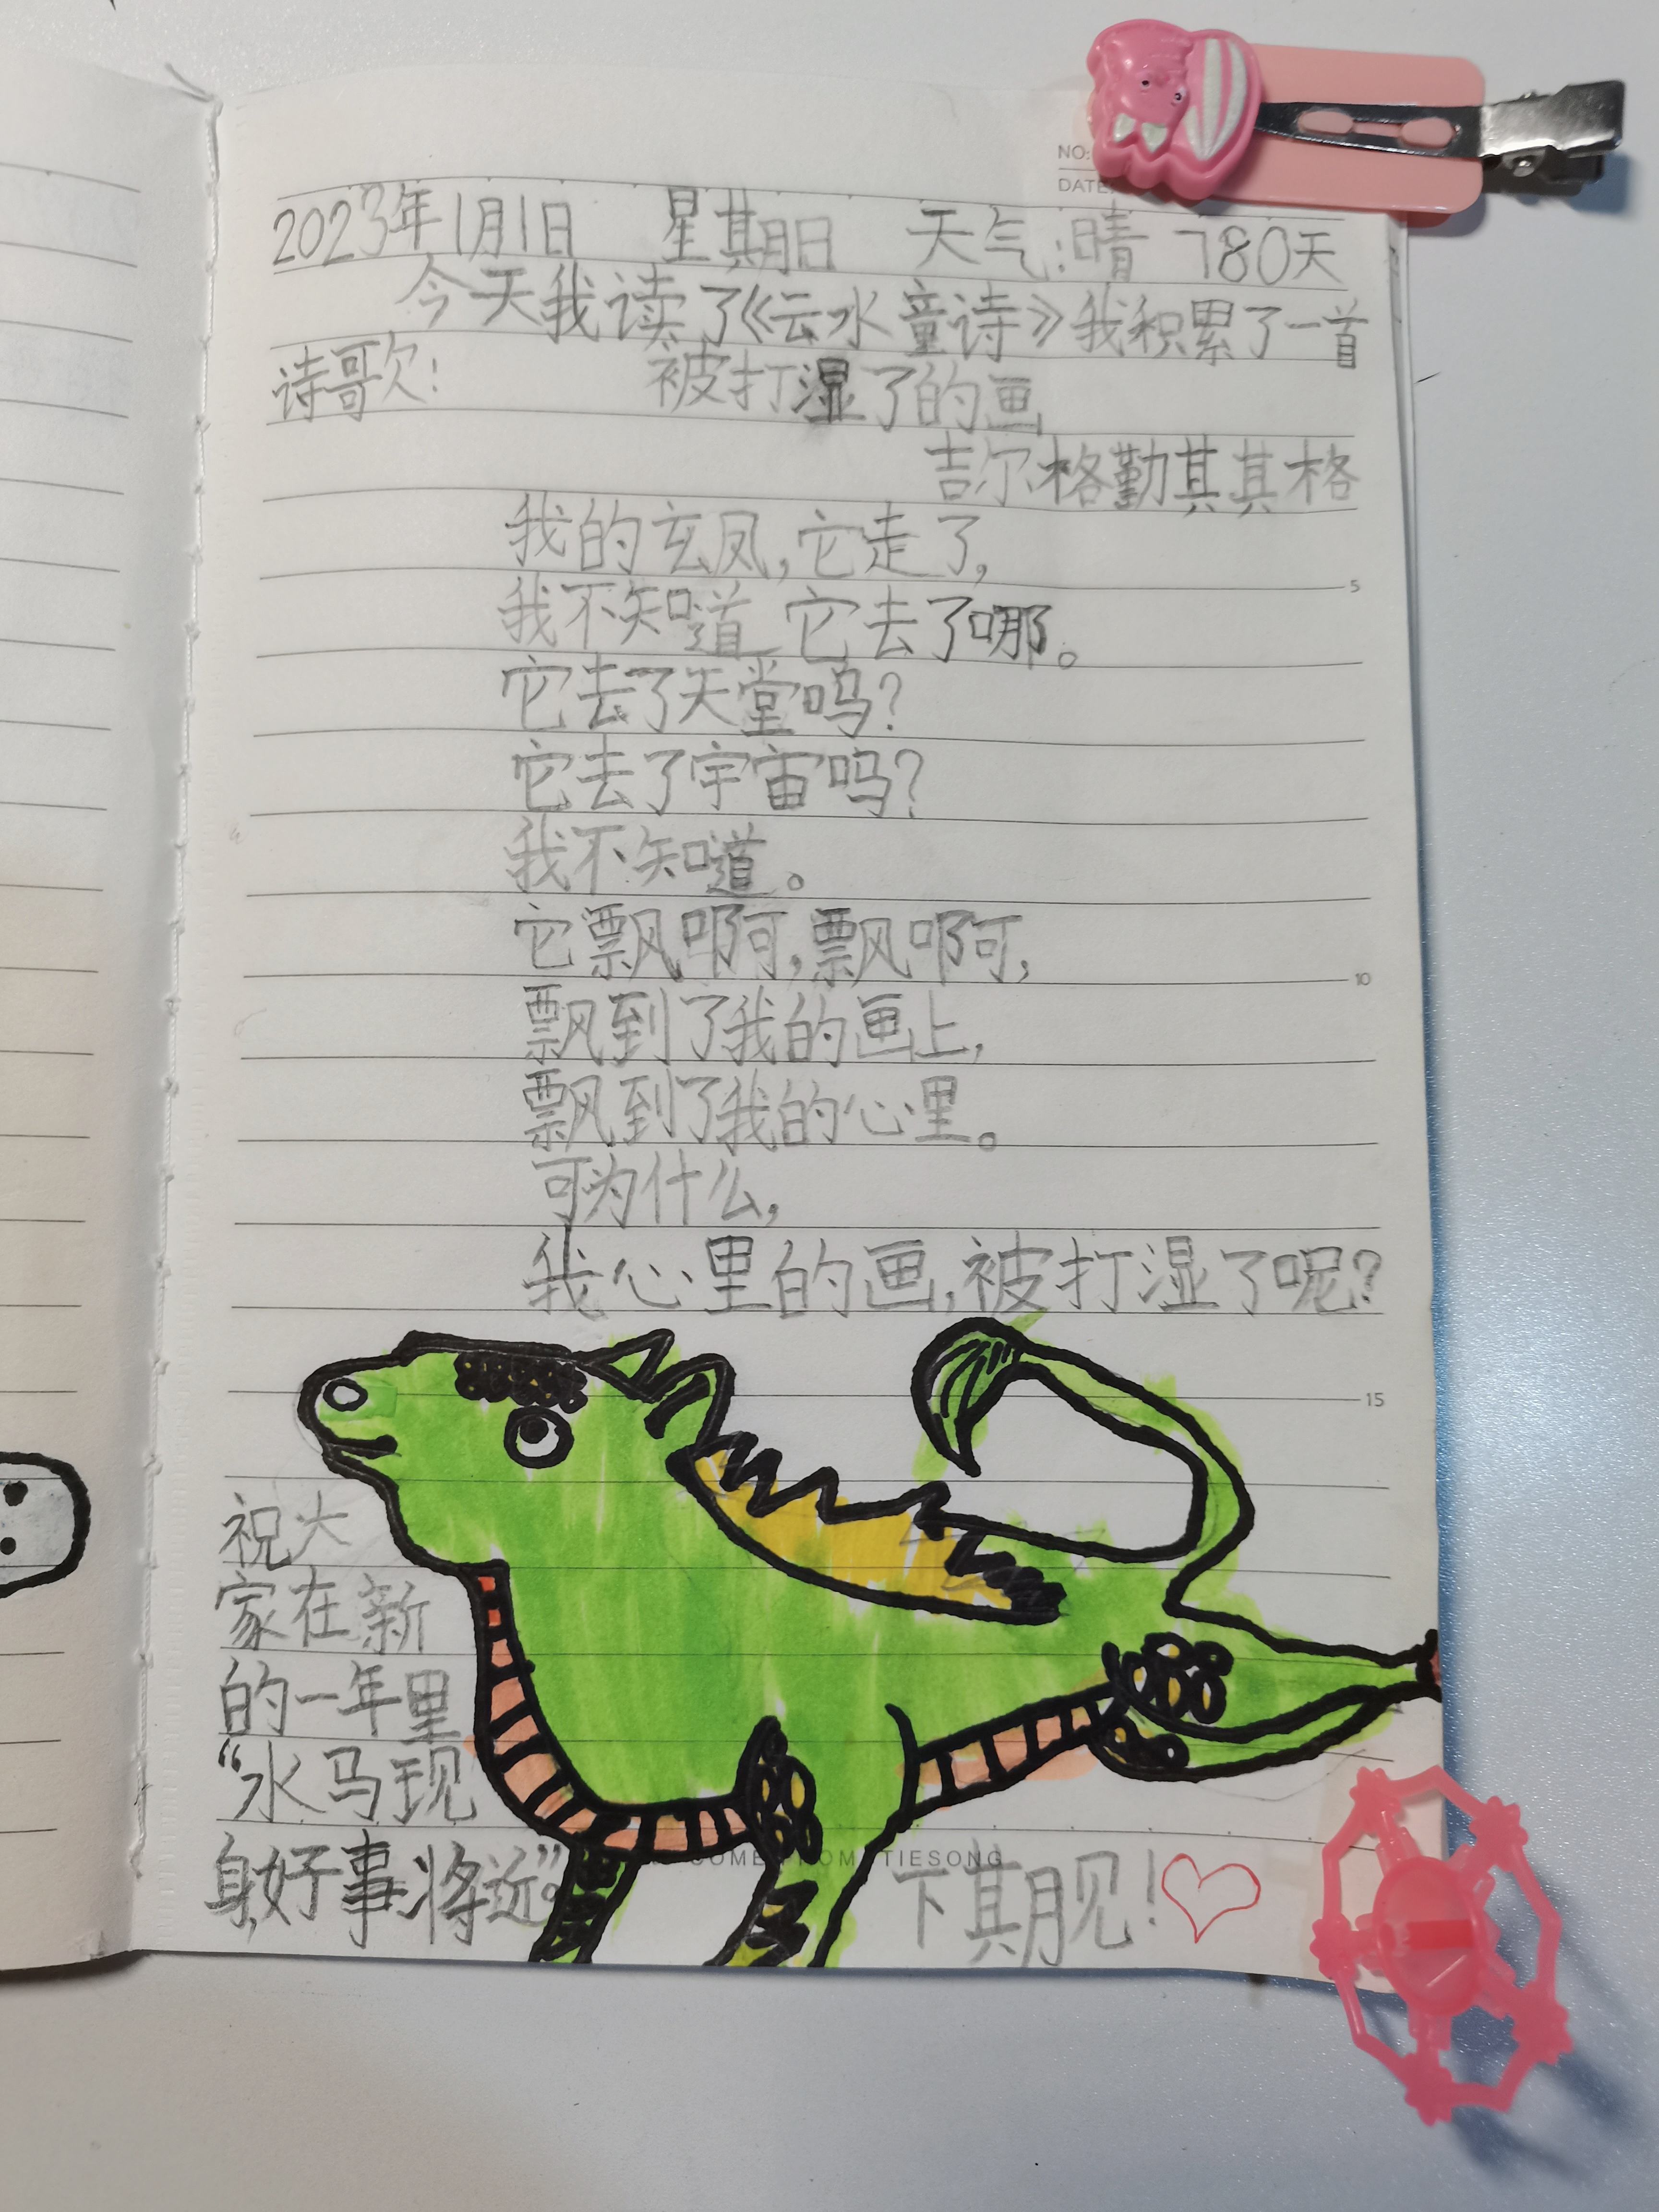 NO:
DATE:
2023年1月1日 星期日 天气:晴 780天
今天我读了《云水童诗》我积累了一首
诗歌:
被打湿了的画
吉尔格勤其其格
我的玄凤,它走了,
我不知道 它去了哪。
它去了天堂吗?
它去了宇宙吗?
我不知道。
它飘啊,飘啊,
飘到了我的画上,
飘到了我的心里。
可为什么,
我心里的画,被打湿了呢?
祝大
家在新
的一年里
“水马现
身好事将近”。
COME FROM TIESONG
下期见!
5
10
15